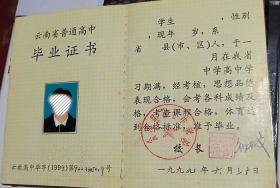 云南省普通高中
毕业证书
云教高中毕字(1999)第
学生 ,性别
,现年 岁,系
省 县(市、区)人,于一
月在我省
中学高中学
习期满,经考核,思想品德
表现合格,会考各科成绩及
格,考查课程合格,体育达
到合格标准,准予毕业。
校长
一九九九年六月 日